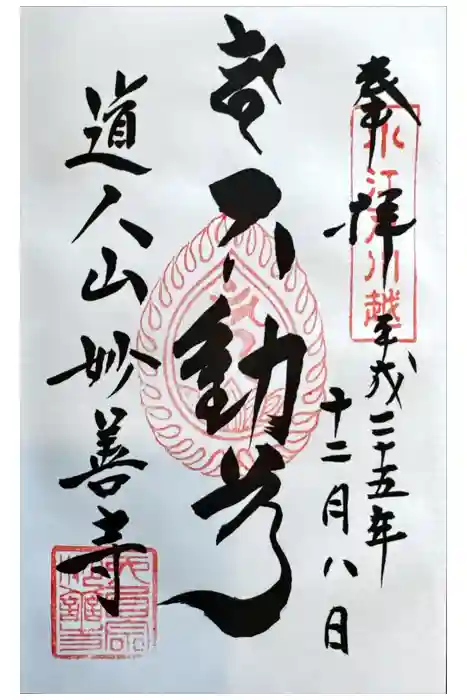 小江戸川越
奉拝
平成二十五年
十二月八日
不動尊
道人山妙善寺